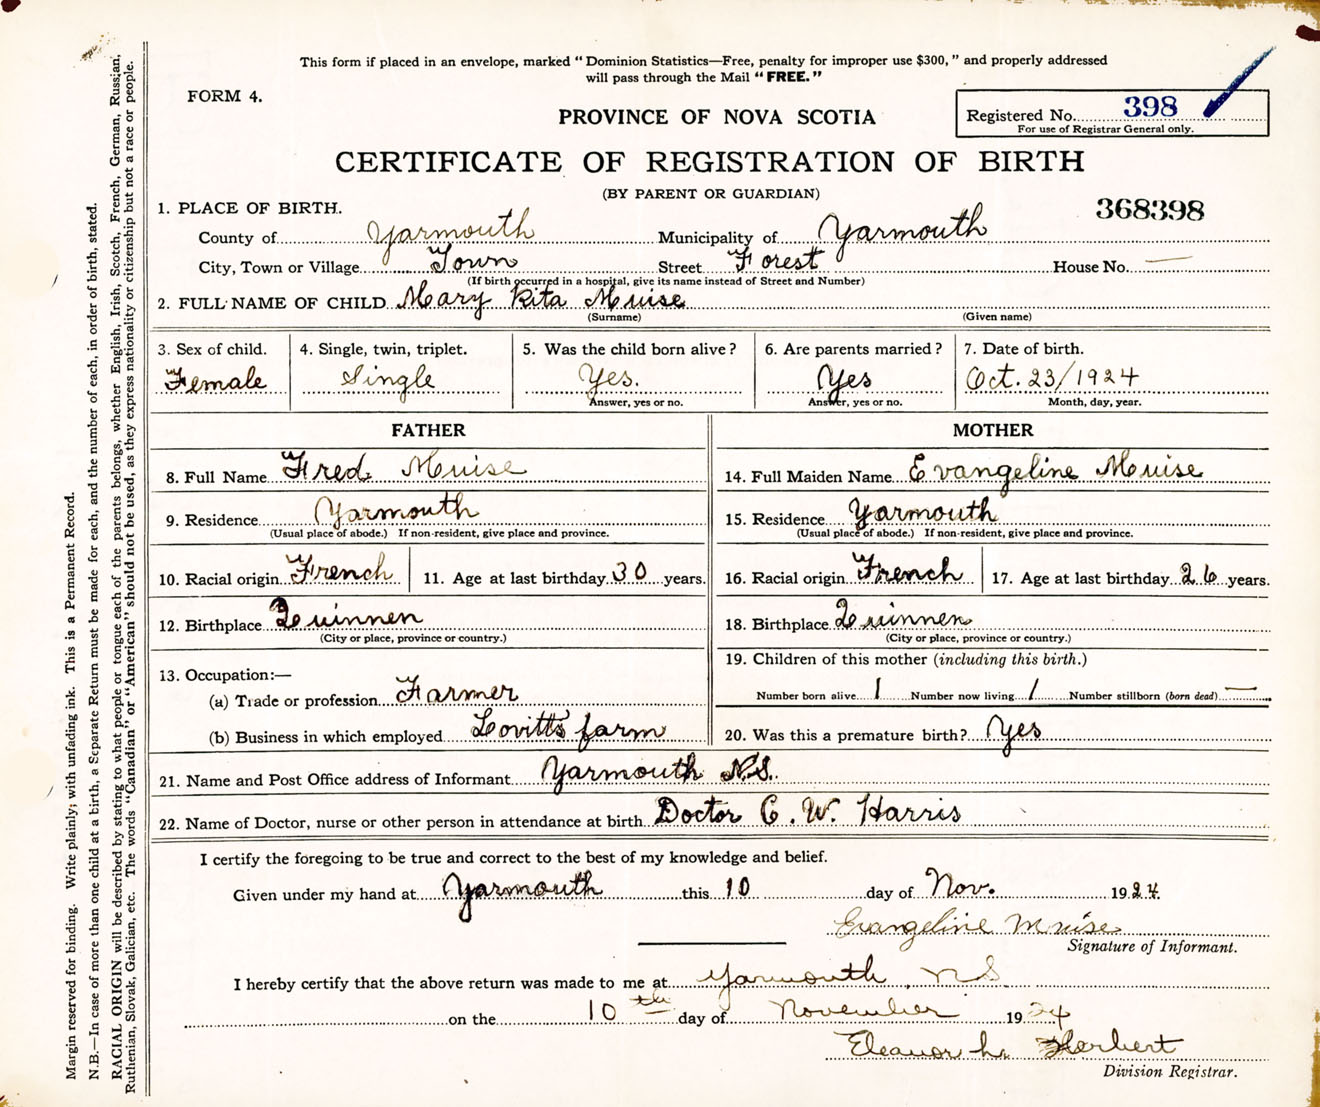 This form if placed in an envelope, marked "Dominion Statistics—Free, penalty for improper use $300," and properly addressed
will pass through the Mail "FREE."
FORM 4.
PROVINCE OF NOVA SCOTIA
Registered No. 398
For use of Registrar General only.
CERTIFICATE OF REGISTRATION OF BIRTH
(BY PARENT OR GUARDIAN)
368398
1. PLACE OF BIRTH.
County of Yarmouth Municipality of Yarmouth
City, Town or Village Town Street Forest House No. —
(If birth occurred in a hospital, give its name instead of Street and Number)
2. FULL NAME OF CHILD Mary Rita Muise
(Surname) (Given name)
3. Sex of child. 4. Single, twin, triplet. 5. Was the child born alive? 6. Are parents married? 7. Date of birth.
Female Single Yes. Yes Oct. 23/1924
Answer, yes or no. Answer, yes or no. Month, day, year.
FATHER MOTHER
8. Full Name Fred Muise 14. Full Maiden Name Evangeline Muise
9. Residence Yarmouth 15. Residence Yarmouth
(Usual place of abode.) If non-resident, give place and province. (Usual place of abode.) If non-resident, give place and province.
10. Racial origin French 11. Age at last birthday 30 years. 16. Racial origin French 17. Age at last birthday 26 years.
12. Birthplace Quinnen 18. Birthplace Quinnen
(City or place, province or country.) (City or place, province or country.)
13. Occupation:— 19. Children of this mother (including this birth.)
(a) Trade or profession Farmer Number born alive 1 Number now living 1 Number stillborn (born dead) —
(b) Business in which employed Lovitts farm 20. Was this a premature birth? Yes
21. Name and Post Office address of Informant Yarmouth N.S.
22. Name of Doctor, nurse or other person in attendance at birth Doctor C. W. Harris
I certify the foregoing to be true and correct to the best of my knowledge and belief.
Given under my hand at Yarmouth this 10 day of Nov. 1924.
Evangeline Muise
Signature of Informant.
I hereby certify that the above return was made to me at Yarmouth, N S
on the 10th day of November 1924
Eleanor L. Herbert
Division Registrar.
Margin reserved for binding. Write plainly; with unfading ink. This is a Permanent Record.
N.B.—In case of more than one child at a birth, a Separate Return must be made for each, and the number of each, in order of birth, stated.
RACIAL ORIGIN will be described by stating to what people or tongue each of the parents belongs, whether English, Irish, Scotch, French, German, Russian,
Ruthenian, Slovak, Galician, etc. The words "Canadian" or "American" should not be used, as they express nationality or citizenship but not a race or people.